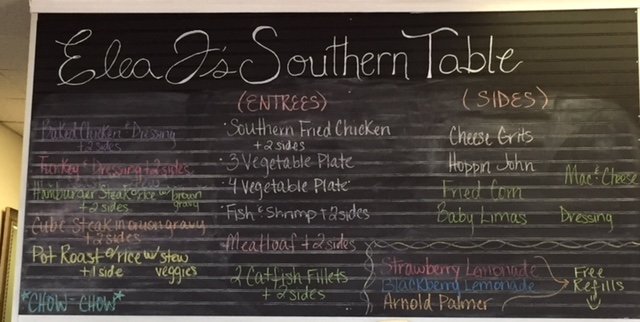 Elea J's Southern Table
(ENTREES)
(SIDES)
Baked Chicken & Dressing
+2 sides
Turkey & Dressing +2 sides
Hamburger Steak o/rice w/ brown
gravy
+2 sides
Cube Steak in onion gravy
+2 sides
Pot Roast o/rice w/ stew
veggies
+1 side
*CHOW-CHOW*
·Southern Fried Chicken
+2 sides
·3 Vegetable Plate
·4 Vegetable Plate
·Fish & Shrimp +2 sides
·Meatloaf +2 sides
·2 Catfish Fillets
+2 sides
Cheese Grits
Hoppin John
Fried Corn
Baby Limas
Mac & Cheese
Dressing
Strawberry Lemonade
Blackberry Lemonade
Arnold Palmer
Free
Refills